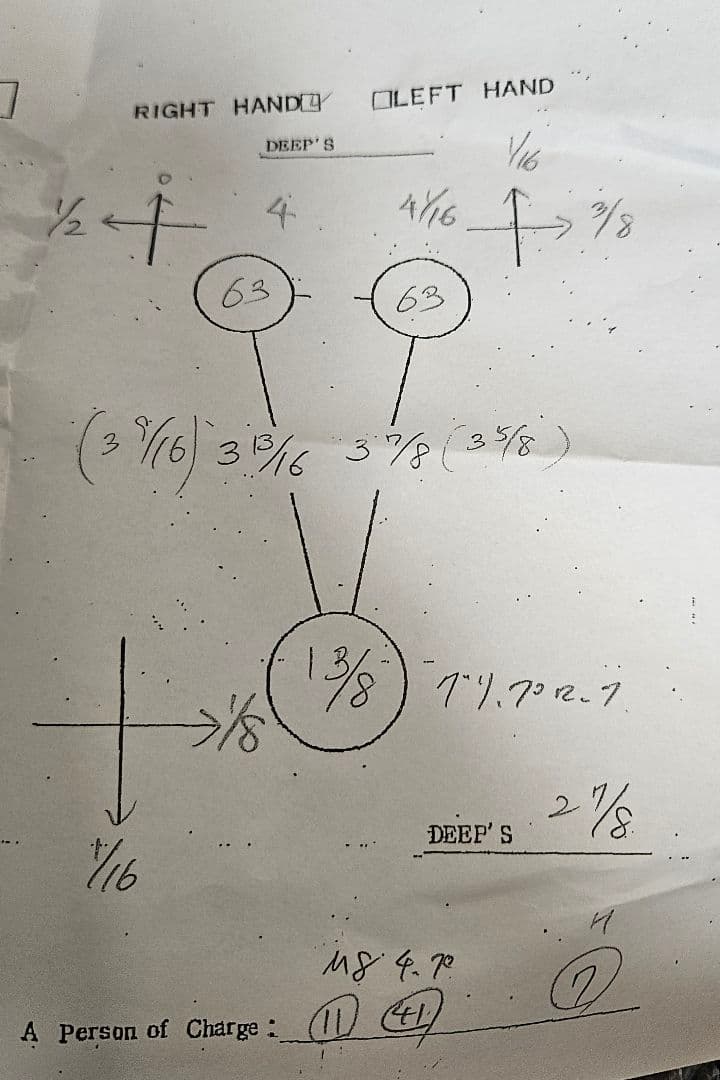 RIGHT HAND LEFT HAND
DEEP'S
1/16
1/2 0 4 4 1/16 3/8
63 63
(3 9/16) 3 13/16 3 7/8 (3 5/8)
1 3/8
1/8
DEEP'S 2 7/8
1/16
H
M8
A Person of Charge : 11 41 7